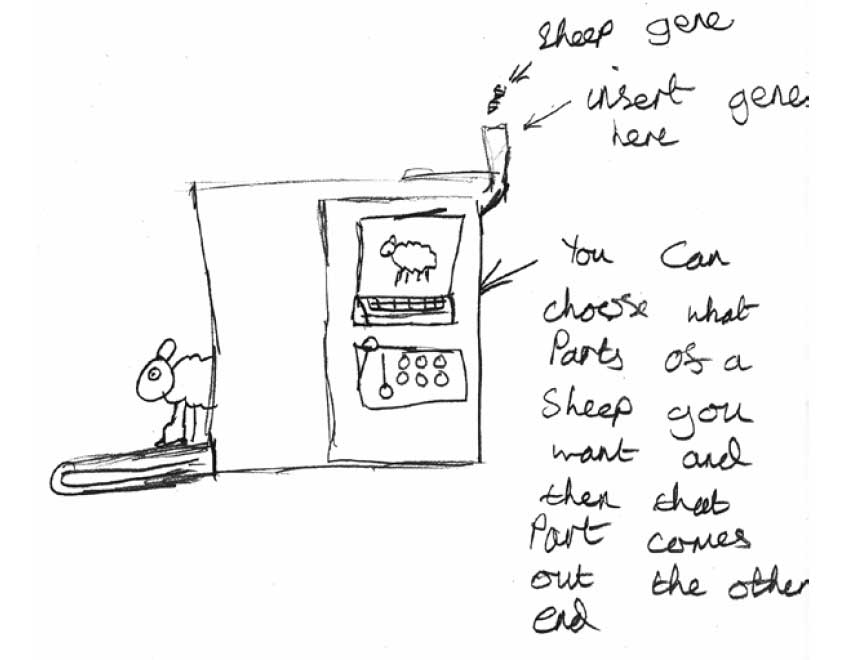 Sheep gene
insert genes
here
You Can
choose what
Parts of a
Sheep you
want and
then that
Part comes
out the other
end